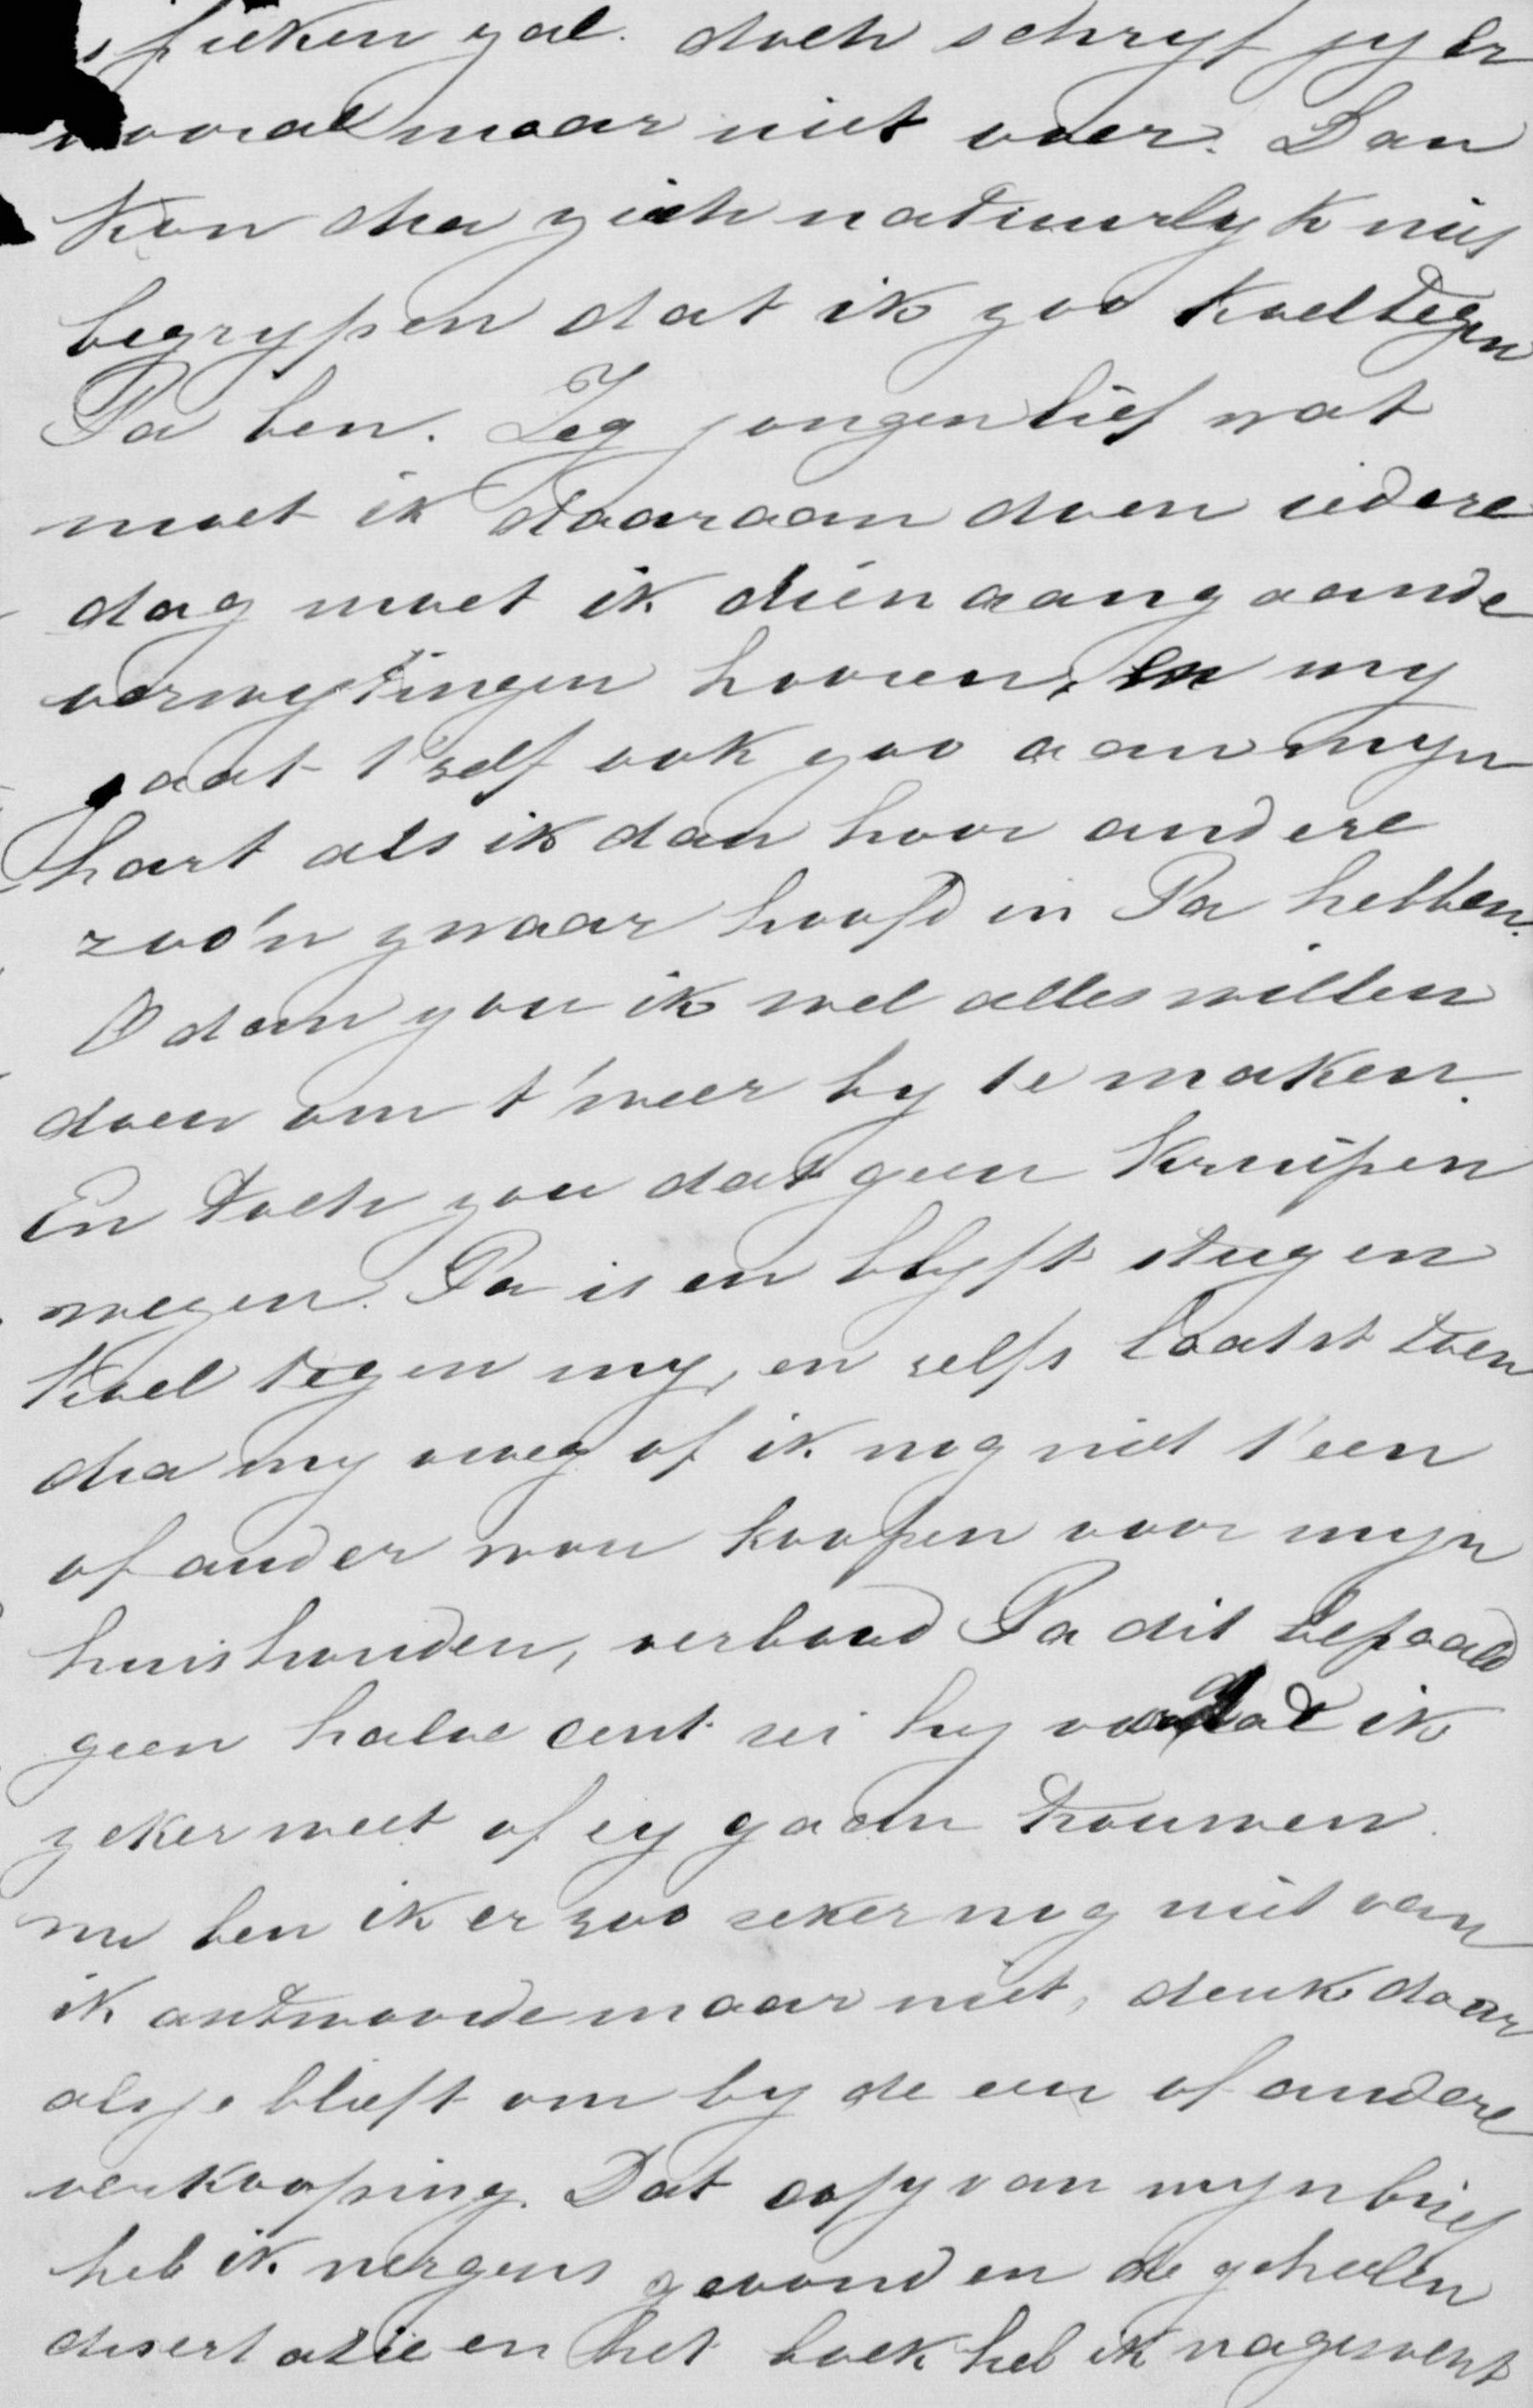 zal. doch schryf jy er
vooral maar niet over. Dan
kon zich natuurlyk niet
begrypen dat ik zoo koel tegen
Pa ben. Zeg jongenlief wat
moet ik daaraan doen iedere
dag moet ik dienaangaande
verwytingen hooren, en my
gaat t'self ook zoo aan myn
hart als ik dan hoor andere
zoo'n zwaar hoofd in Pa hebben.
O dan zou ik wel alles willen
doen om t'weer by te maken.
En toch zou dat geen kruipen
wezen. Pa is en blyft stug en
koel tegen my, en zelfs laatst toen
my vroeg of ik nog niet t'een
of ander wou koopen voor myn
huishouden, verbood Pa dit bepaald
geen halve cent zei hy voordat ik
zeker weet of zy gaan trouwen.
nu ben ik er zoo zeker nog niet van
ik antwoorde maar niet, denk daar
alsje blieft om by de een of andere
verkooping. Dat copy van myn brief
heb ik nergens gevonden de geheelen
disertatie en het boek heb ik nagesnolt